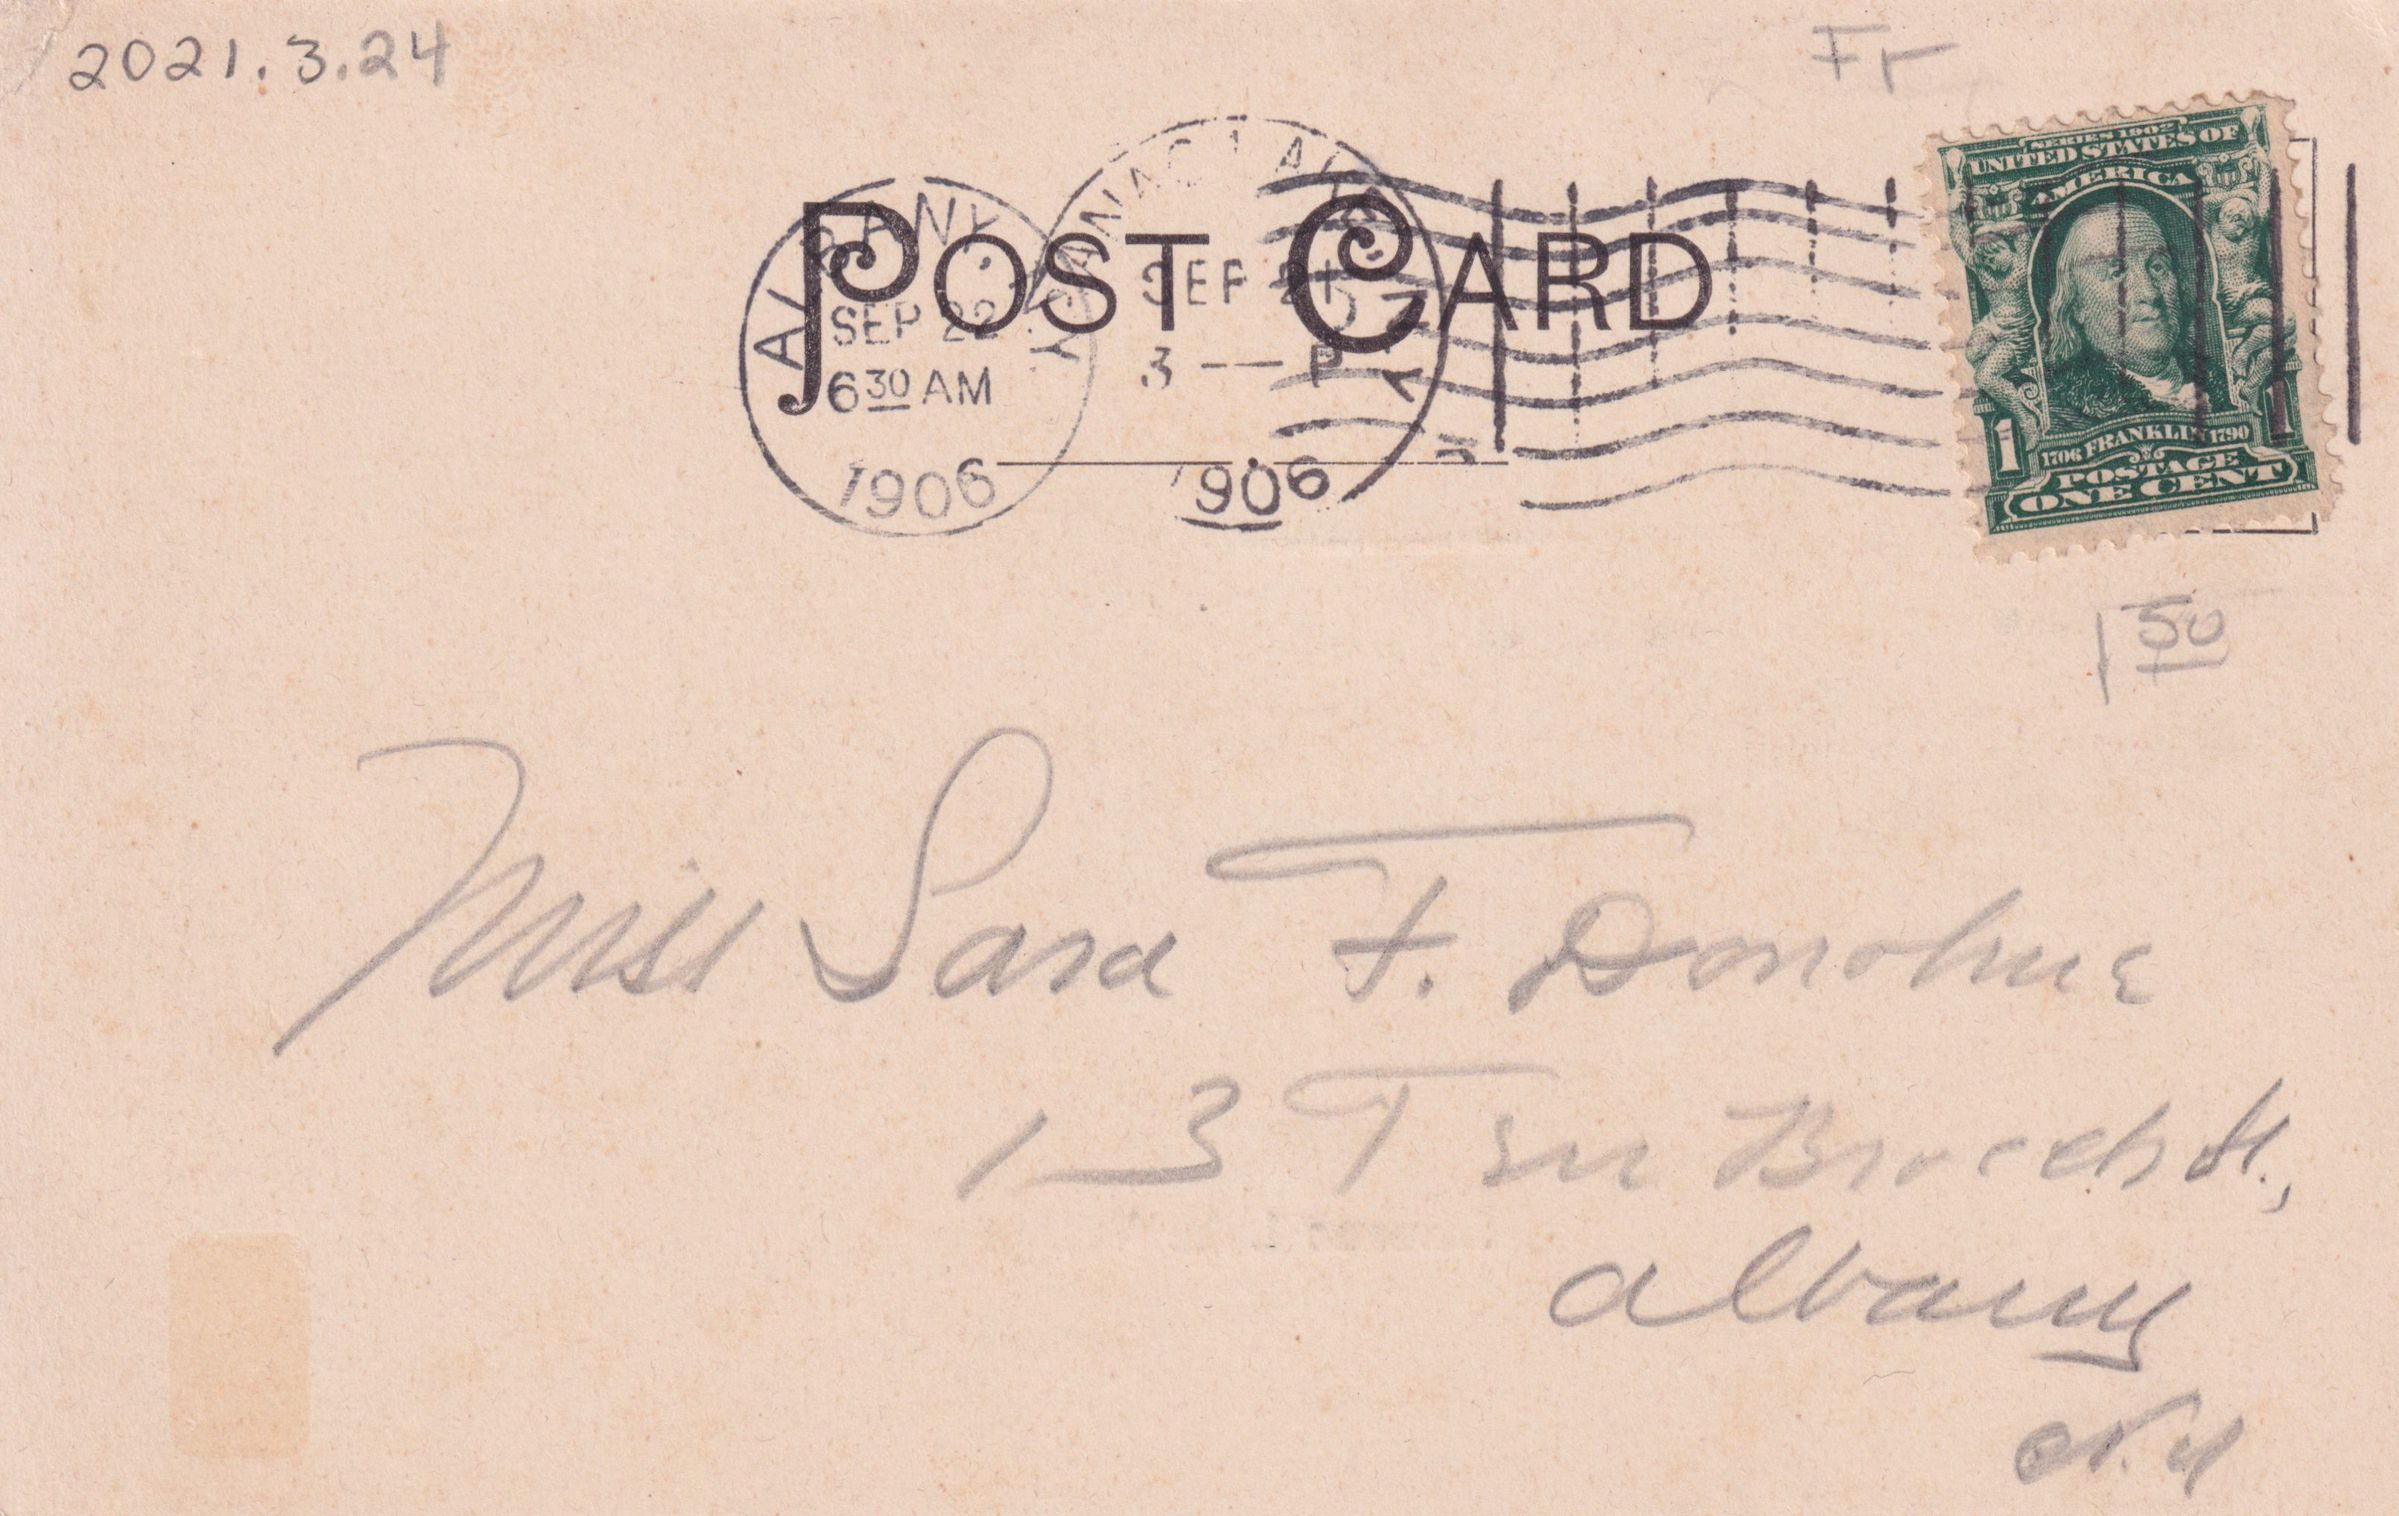 2021.3.24
Fr
POST CARD
ALBANY, N.Y.
SEP 22
630 AM
1906
SARANAC LAKE
SEP 21
3 — P
1906
N.Y.
SERIES 1902
UNITED STATES OF
AMERICA
1706 FRANKLIN 1790
POSTAGE
1 ONE CENT 1
1 50
Miss Sara F. Donohue
13 Ten Broeck St.,
Albany
N.Y